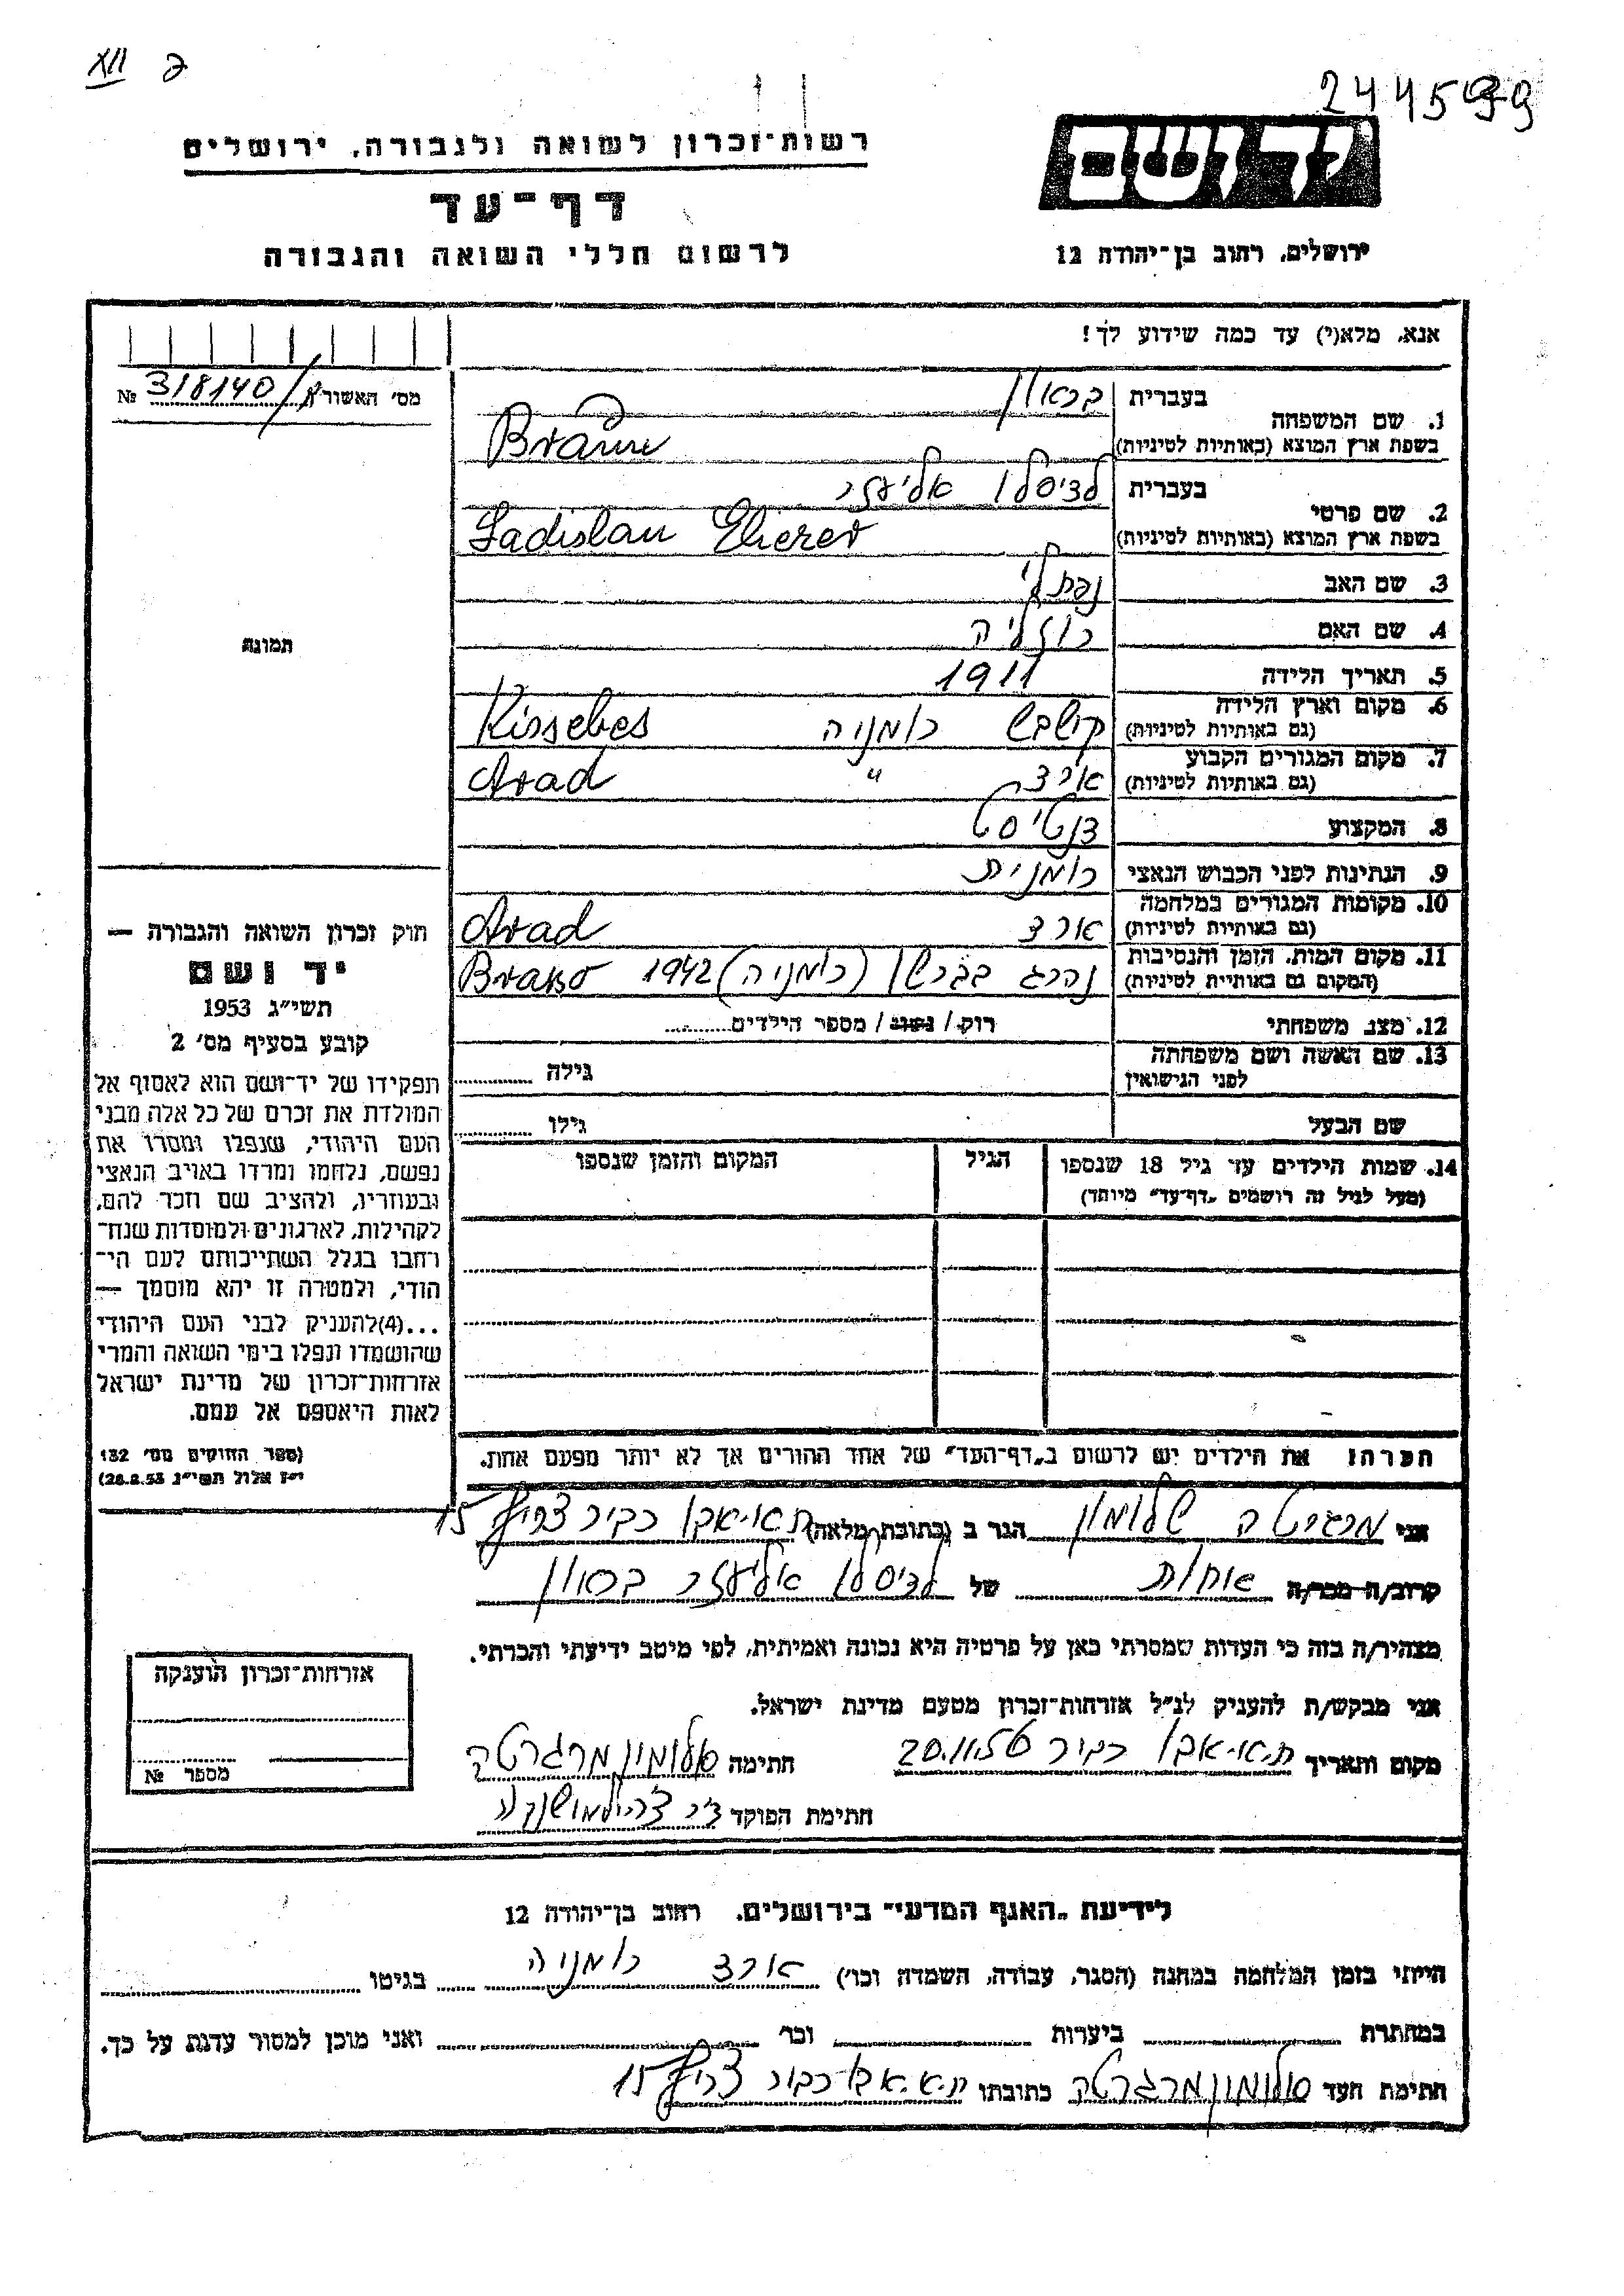 XII ב
244599
יד ושם
רשות־זכרון לשואה ולגבורה, ירושלים
דף־עד
לרשום חללי השואה והגבורה
ירושלים, רחוב בן־יהודה 12
אנא, מלא(י) עד כמה שידוע לך!
מס' האשור № 318140/
1. שם המשפחה בעברית בראון
בשפת ארץ המוצא (באותיות לטיניות) Braun
2. שם פרטי בעברית לדיסלו אליעזר
בשפת ארץ המוצא (באותיות לטיניות) Ladislau Elierer
3. שם האב נפתלי
4. שם האם רוזליה
5. תאריך הלידה 1911
6. מקום וארץ הלידה קישבש רומניה Kissebes
(גם באותיות לטיניות)
7. מקום המגורים הקבוע ארד " Arad
(גם באותיות לטיניות)
8. המקצוע דנטיסט
9. הנתינות לפני הכבוש הנאצי רומנית
10. מקומות המגורים במלחמה ארד Arad
(גם באותיות לטיניות)
11. מקום המות, הזמן והנסיבות נהרג בברשו (רומניה) 1942 Braso
(המקום גם באותיות לטיניות)
12. מצב משפחתי רוק / נשוי / מספר הילדים
13. שם האשה ושם משפחתה לפני הנישואין גילה
שם הבעל גילו
14. שמות הילדים עד גיל 18 שנספו הגיל המקום והזמן שנספו
(מעל לגיל זה רושמים „דף־עד" מיוחד)
תמונה
חוק זכרון השואה והגבורה —
יד ושם
תשי"ג 1953
קובע בסעיף מס' 2
תפקידו של יד־ושם הוא לאסוף אל
המולדת את זכרם של כל אלה מבני
העם היהודי, שנפלו ומסרו את
נפשם, נלחמו ומרדו באויב הנאצי
ובעוזריו, ולהציב שם וזכר להם,
לקהילות, לארגונים ולמוסדות שנח־
רבו בגלל השתייכותם לעם הי־
הודי, ולמטרה זו יהא מוסמך —
...(4) להעניק לבני העם היהודי
שהושמדו ונפלו בימי השואה והמרי
אזרחות־זכרון של מדינת ישראל
לאות היאספם אל עמם.
(ספר החוקים מס' 132
י"ז אלול תשי"ג 28.8.53)
הערה: את הילדים יש לרשום ב„דף־העד" של אחד ההורים אך לא יותר מפעם אחת.
אני מרגרטה שלומון הגר ב (כתובת מלאה) ת.א. אבו כביר צריף 15
קרוב/ה מכר/ה אחות של לדיסלו אליעזר בראון
מצהיר/ה בזה כי העדות שמסרתי כאן על פרטיה היא נכונה ואמיתית, לפי מיטב ידיעתי והכרתי.
אני מבקש/ת להעניק לנ"ל אזרחות־זכרון מטעם מדינת ישראל.
מקום ותאריך ת.א. אבו כביר 20.11.56 חתימה סלומון מרגרטה
חתימת הפוקד
אזרחות־זכרון הוענקה
מספר №
לידיעת „האגף המדעי" בירושלים, רחוב בן־יהודה 12
הייתי בזמן המלחמה במחנה (הסגר, עבודה, השמדה וכו') ארד רומניה בגיטו
במחתרת ביערות וכו' ואני מוכן למסור עדות על כך.
חתימת העד סולומון מרגרטה כתובתו ת.א. אבו כביר צריף 15